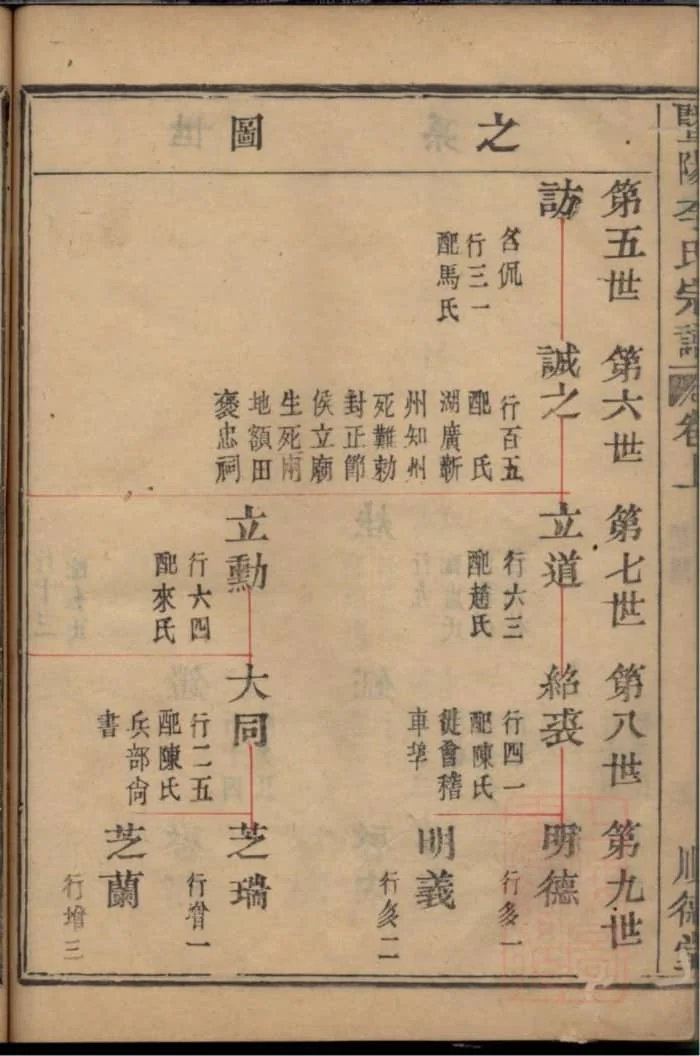 暨陽李氏宗譜
卷上
順德堂
之圖
第五世
第六世
第七世
第八世
第九世
訪
名侃
行三一
配馬氏
誠之
行百五
配氏
湖廣蘄
州知州
死難勅
封正節
侯立廟
生死兩
地額田
褒忠祠
立道
行六三
配趙氏
紹裘
行四一
配陳氏
徙會稽
車𡊢
明德
行𡖇一
明義
行𡖇二
立勳
行六四
配來氏
大同
行二五
配陳氏
兵部尙
書
芝瑞
行增一
芝蘭
行增三